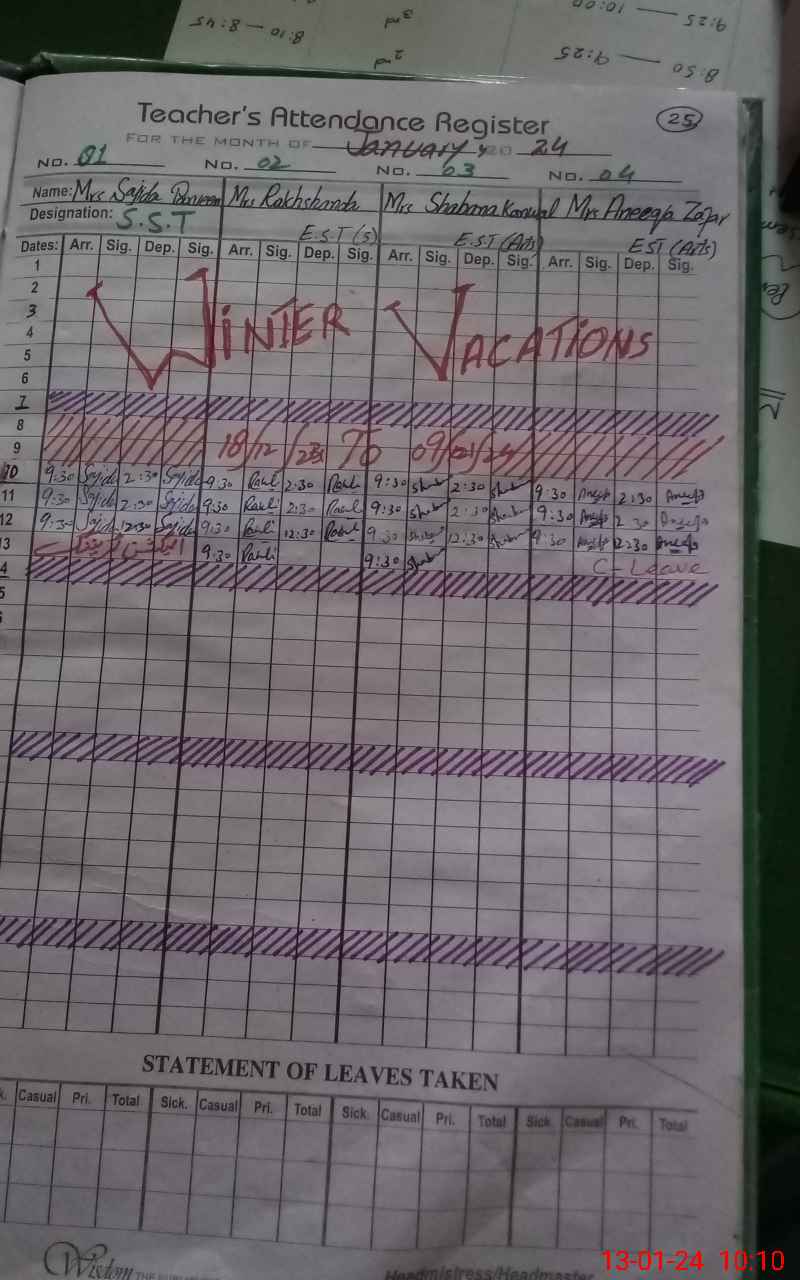 8:10 — 8:45
3rd
2nd
9:25 — 10:00
8:50 — 9:25
Teacher's Attendance Register
25
FOR THE MONTH OF JANUARY 20 24
No. 01 No. 02 No. 03 No. 04
Name: Mrs Sajida Mrs Rakhshanda Mrs Shabana Kanwal Mrs Aneeqa Zafar
Designation: S.S.T E.S.T (S) E.S.T (Arts) EST (Arts)
Dates: Arr. Sig. Dep. Sig. Arr. Sig. Dep. Sig. Arr. Sig. Dep. Sig. Arr. Sig. Dep. Sig.
1
2
3
4
5
6
WINTER VACATIONS
7
8
9
18/12/23 TO 09/01/24
10 9:30 Sajida 2:30 Sajida 9:30 2:30 9:30 2:30 9:30 2:30
11 9:30 Sajida 2:30 Sajida 9:30 2:30 9:30 2:30 9:30 2:30
12 9:30 Sajida 12:30 Sajida 9:30 12:30 9:30 12:30 9:30 12:30
13 الیکشن 9:30 9:30 C-Leave
4
5
6
STATEMENT OF LEAVES TAKEN
k. Casual Pri. Total Sick. Casual Pri. Total Sick. Casual Pri. Total Sick. Casual Pri. Total
Wisdom Headmistress/Headmaster
13-01-24 10:10